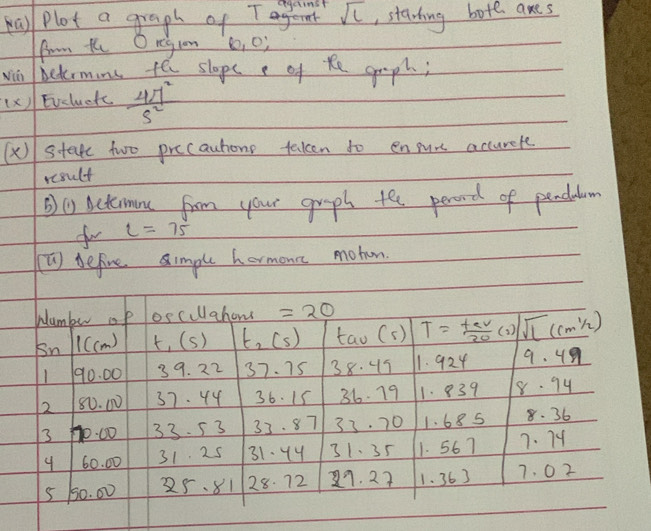 (vii) Plot a graph of T against √L, starting both axes
from the O region (0,0);
viii) Determine the slope s of the graph;
(ix) Evaluate 4π²/s²
(x) State two precautions taken to ensure accurate
result
b) (i) Determine from your graph the period of pendulum
for l = 75
(ii) Define simple harmonic motion.
Number of oscillations = 20
Sn l(cm) t₁(s) t₂(s) tav(s) T = tav/20 (s) √L (cm^1/2)
1 90.00 39.22 37.75 38.49 1.924 9.49
2 80.00 37.44 36.15 36.79 1.839 8.94
3 70.00 33.53 33.87 33.70 1.685 8.36
4 60.00 31.25 31.44 31.35 1.567 7.74
5 50.00 25.81 28.72 27.27 1.363 7.07